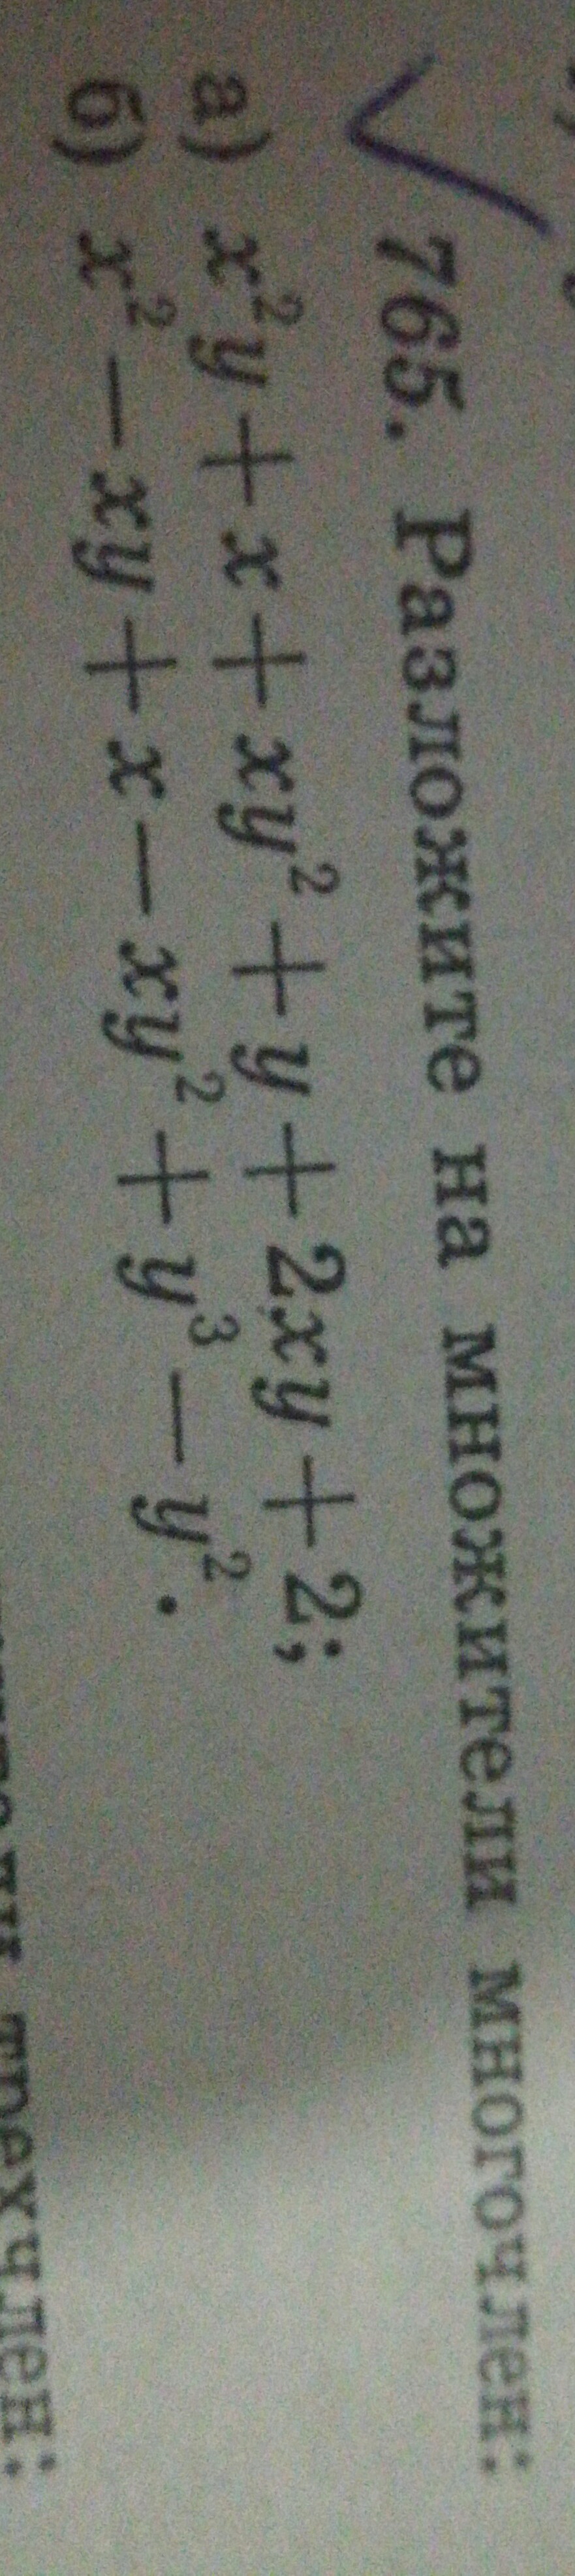 765. Разложите на множители многочлен:
а) x²y + x + xy² + y + 2xy + 2;
б) x² – xy + x – xy² + y³ – y².